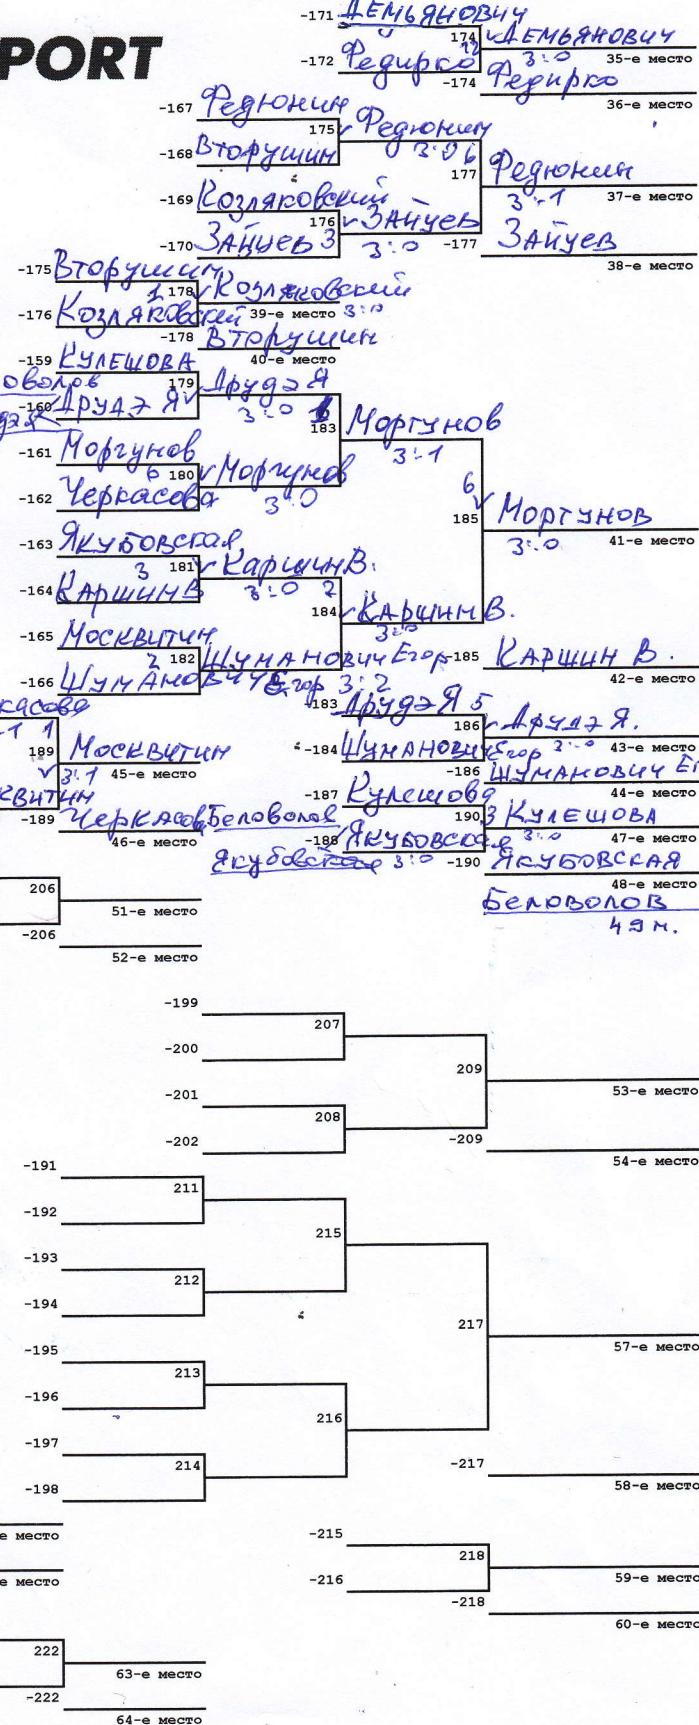 PORT
-171 ДЕМЬЯНОВИЧ
174 ДЕМЬЯНОВИЧ
3:0 35-е место
-172 Федирко
-174 Федирко
36-е место
-167 Федюнин
175 Федюнин
3:0 6
-168 Вторушин
177 Федюнин
3:1 37-е место
-169 Козляковский
176 ЗАЙЦЕВ
3:0
-170 ЗАЙЦЕВ 3
-177 ЗАЙЦЕВ
38-е место
-175 Вторушин
178 Козляковский
39-е место 3:0
-176 Козляковский
-178 Вторушин
40-е место
-159 КУЛЕШОВА
179 Друдэ Я
3:0
-160 Друдэ Я
183 Моргунов
3:1
-161 Моргунов
6 180 Моргунов
3:0
-162 Черкасова
6
185 МОРГУНОВ
3:0 41-е место
-163 Якубовская
3 181 Каршин В.
3:0 2
-164 КАРШИН В
184 КАРШИН В.
3:0
-165 Москвитин
2 182 ШУМАНОВИЧ Егор
3:2
-166 ШУМАНОВИЧ Егор
-185 КАРШИН В.
42-е место
-183 Друдэ Я 5
186 Друдэ Я.
3:0 43-е место
-184 ШУМАНОВИЧ Егор
-186 ШУМАНОВИЧ Ег
44-е место
касова
1 1
189 МОСКВИТИН
3:1 45-е место
квитин
-189 Черкасов
46-е место
-187 Кулешова
190 3 КУЛЕШОВА
3:0 47-е место
Беловолов
-188 ЯКУБОВСКАЯ
Якубовская 3:0
-190 ЯКУБОВСКАЯ
48-е место
БЕЛОВОЛОВ
49 м.
206
51-е место
-206
52-е место
-199
207
-200
209
53-е место
-201
208
-202
-209
54-е место
-191
211
-192
215
-193
212
-194
217
57-е место
-195
213
-196
216
-197
214
-198
-217
58-е место
е место
-215
218
59-е место
-216
е место
-218
60-е место
222
63-е место
-222
64-е место